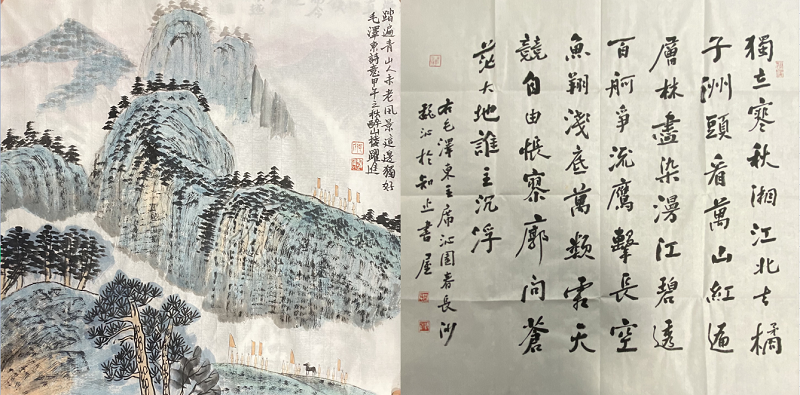 踏遍青山人未老風景這邊獨好
毛澤東詩意甲午之秋醉山樓躍進
獨立寒秋湘江北去橘
子洲頭看萬山紅遍
層林盡染漫江碧透
百舸爭流鷹擊長空
魚翔淺底萬類霜天
競自由悵寥廓問蒼
茫大地誰主沉浮
右毛澤東主席沁園春長沙
沁於知止書屋